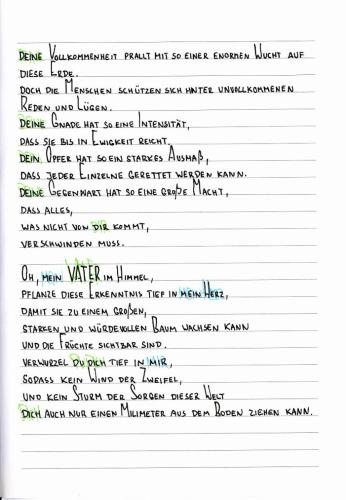 DEINE VOLLKOMMENHEIT PRALLT MIT SO EINER ENORMEN WUCHT AUF
DIESE ERDE.
DOCH DIE MENSCHEN SCHÜTZEN SICH HINTER UNVOLLKOMMENEN
REDEN UND LÜGEN.
DEINE GNADE HAT SO EINE INTENSITÄT,
DASS SIE BIS IN EWIGKEIT REICHT.
DEIN OPFER HAT SO EIN STARKES AUSMAß,
DASS JEDER EINZELNE GERETTET WERDEN KANN.
DEINE GEGENWART HAT SO EINE GROßE MACHT,
DASS ALLES,
WAS NICHT VON DIR KOMMT,
VERSCHWINDEN MUSS.
OH, MEIN VATER IM HIMMEL,
PFLANZE DIESE ERKENNTNIS TIEF IN MEIN HERZ,
DAMIT SIE ZU EINEM GROßEN,
STARKEN UND WÜRDEVOLLEN BAUM WACHSEN KANN
UND DIE FRÜCHTE SICHTBAR SIND.
VERWURZEL DU DICH TIEF IN MIR,
SODASS KEIN WIND DER ZWEIFEL,
UND KEIN STURM DER SORGEN DIESER WELT
DICH AUCH NUR EINEN MILIMETER AUS DEM BODEN ZIEHEN KANN.